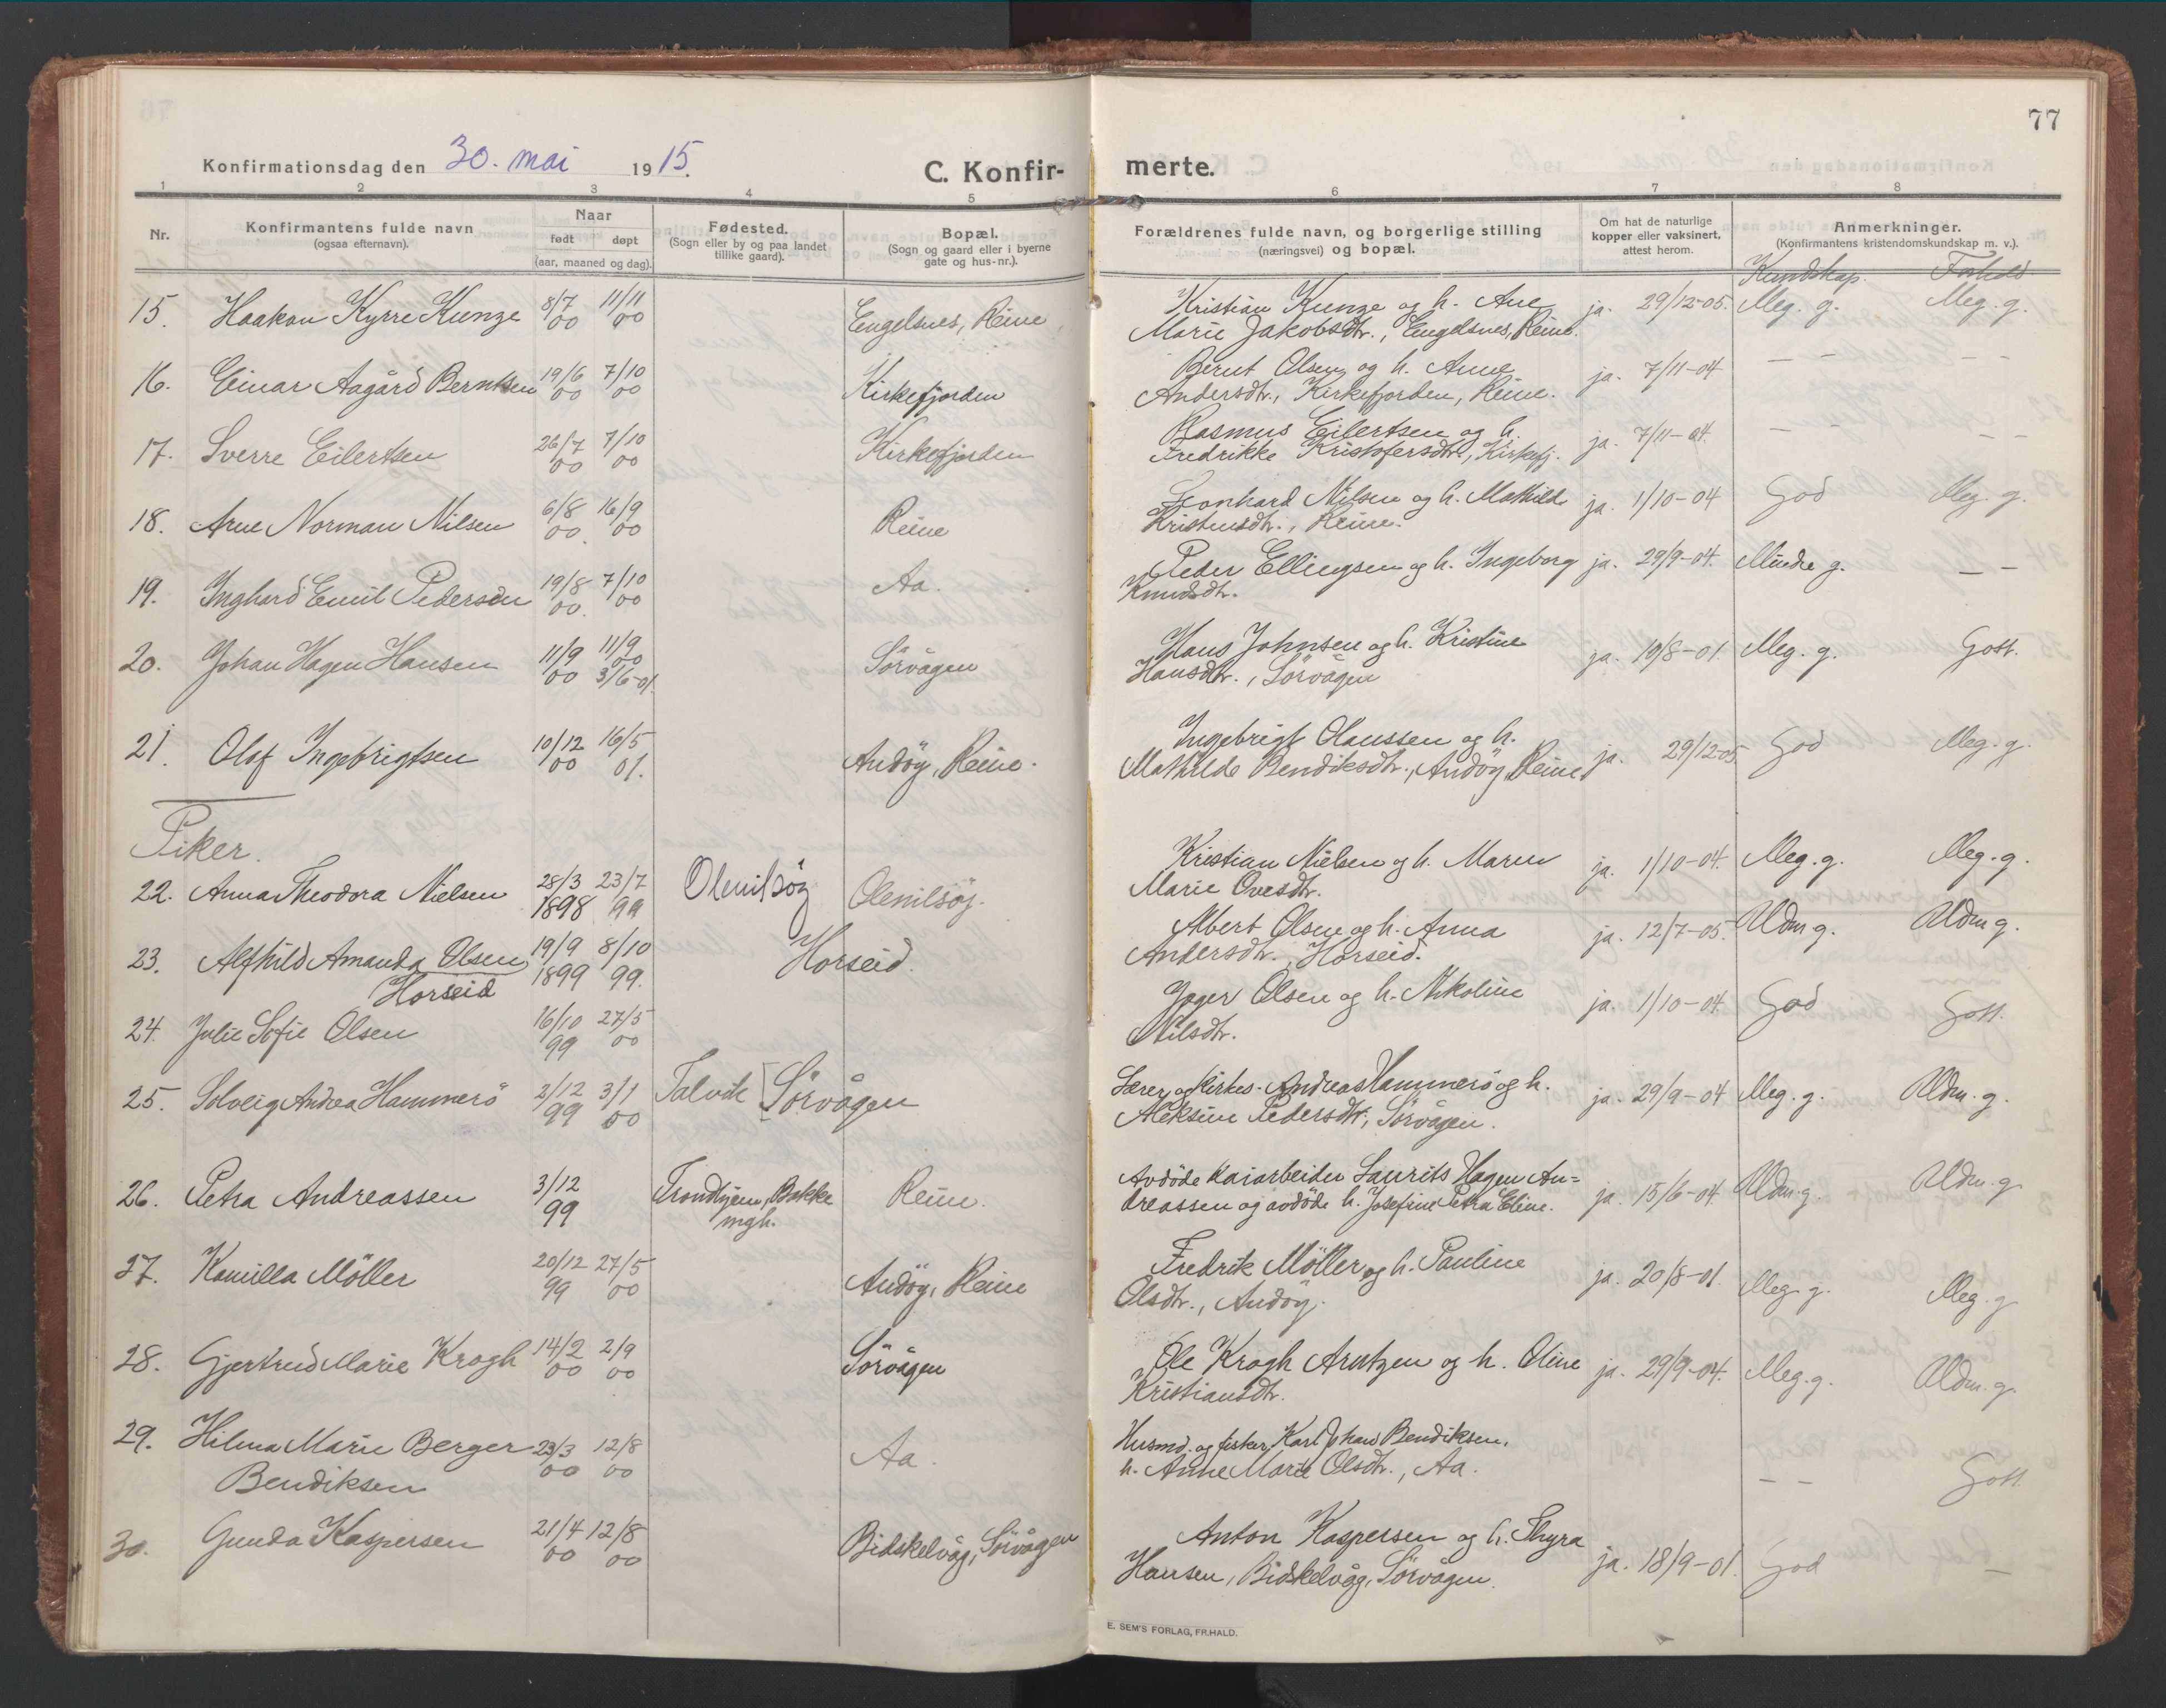 77
Konfirmationsdag den 30. mai 1915.
C. Konfirmerte.
1 2 3 4 5 6 7 8
Nr.
Konfirmantens fulde navn
(ogsaa efternavn).
Naar
født døpt
(aar, maaned og dag).
Fødested.
(Sogn eller by og paa landet
tillike gaard).
Bopæl.
(Sogn og gaard eller i byerne
gate og hus-nr.).
Forældrenes fulde navn, og borgerlige stilling
(næringsvei) og bopæl.
Om hat de naturlige
kopper eller vaksinert,
attest herom.
Anmerkninger.
(Konfirmantens kristendomskundskap m. v.).
Kundskap. Forhold.
15. Haakon Kyrre Kunze 8/7 00 11/11 00 Engelsnes, Reine Kristian Kunze og h. Ane ja. 29/12-05. Meg. g. Meg. g.
Marie Jakobsdtr., Engelsnes, Reine.
16. Einar Aagård Berntsen 19/6 00 7/10 00 Kirkefjorden Bernt Olsen og h. Anne ja. 7/11-04 — — — —
Andersdtr., Kirkefjorden, Reine.
17. Sverre Eilertsen 26/7 00 7/10 00 Kirkefjorden Rasmus Eilertsen og h. ja. 7/11-04. — — — —
Fredrikke Kristofersdtr., Kirkefj.
18. Arne Norman Nilsen 6/8 00. 16/9 00 Reine Leonhard Nilsen og h. Mathilde ja. 1/10-04 God Meg. g.
Kristensdtr., Reine.
19. Inghard Emil Pedersen 19/8 00. 7/10 00 Aa. Peder Ellingsen og h. Ingeborg ja. 29/9-04. Mindre g. — —
Knudsdtr.
20. Johan Hagen Hansen 11/9 00 11/9 00 3/6-01. Sörvågen Hans Johnsen og h. Kristine ja. 10/8-01. Meg. g. Godt.
Hansdtr., Sörvågen
21. Olaf Ingebrigtsen 10/12 00 16/5 01. Andöy, Reine. Ingebrigt Olaussen og h. ja. 29/12-05 God Meg. g.
Mathilde Bendiksdtr., Andöy, Reine
Piker.
22. Anna Theodora Nielsen 28/3 1898 23/7 99 Olenilsöy Olenilsöy. Kristian Nielsen og h. Maren ja. 1/10-04. Meg. g. Meg. g.
Marie Ovesdtr.
23. Alfhild Amanda Olsen 19/9 1899 8/10 99. Horseid. Albert Olsen og h. Anna ja. 12/7-05. Udm g. Udm g.
Horseid Andersdtr., Horseid.
24. Julie Sofie Olsen 16/10 99 27/5 00 Olsen og h. Nikoline ja. 1/10-04 God Godt.
Nilsdtr.
25. Solveig Andrea Hammerö 2/12 99 3/1 00 Talvik Sörvågen Lærer og kirkes. Andreas Hammerö og h. ja. 29/9-04 Meg. g. Udm. g.
Aleksine Pedersdtr., Sörvågen.
26. Petra Andreassen 3/12 99 Trondhjem, Bakke Reine. Avdöde kaiarbeider Laurits Hagen An= ja. 15/6-04 Udm. g. Udm. g.
mgh. dreassen og avdöde h. Josefine Petra Eline.
27. Kamilla Möller 20/12 99 27/5 00 Andöy, Reine Fredrik Möller og h. Pauline ja. 20/8-01. Meg. g. Meg. g
Olsdtr., Andöy.
28. Gjertrud Marie Krogh 14/2 00 2/9 00 Sörvågen Ole Krogh Arntzen og h. Oline ja. 29/9-04. Meg. g. Udm. g.
Kristiansdtr.
29. Hilma Marie Berger 23/3 00 12/8 00 Aa. Husmd. og fisker Karl Johan Bendiksen, — — Godt.
Bendiksen h. Anne Marie Olsdtr., Aa.
30. Gunda Kaspersen 21/4 00 12/8 00 Bidskelvåg, Sörvågen Anton Kaspersen og h. Thyra ja. 18/9-01. God —
Hansen, Bidskelvåg, Sörvågen.
E. SEM'S FORLAG, FR.HALD.